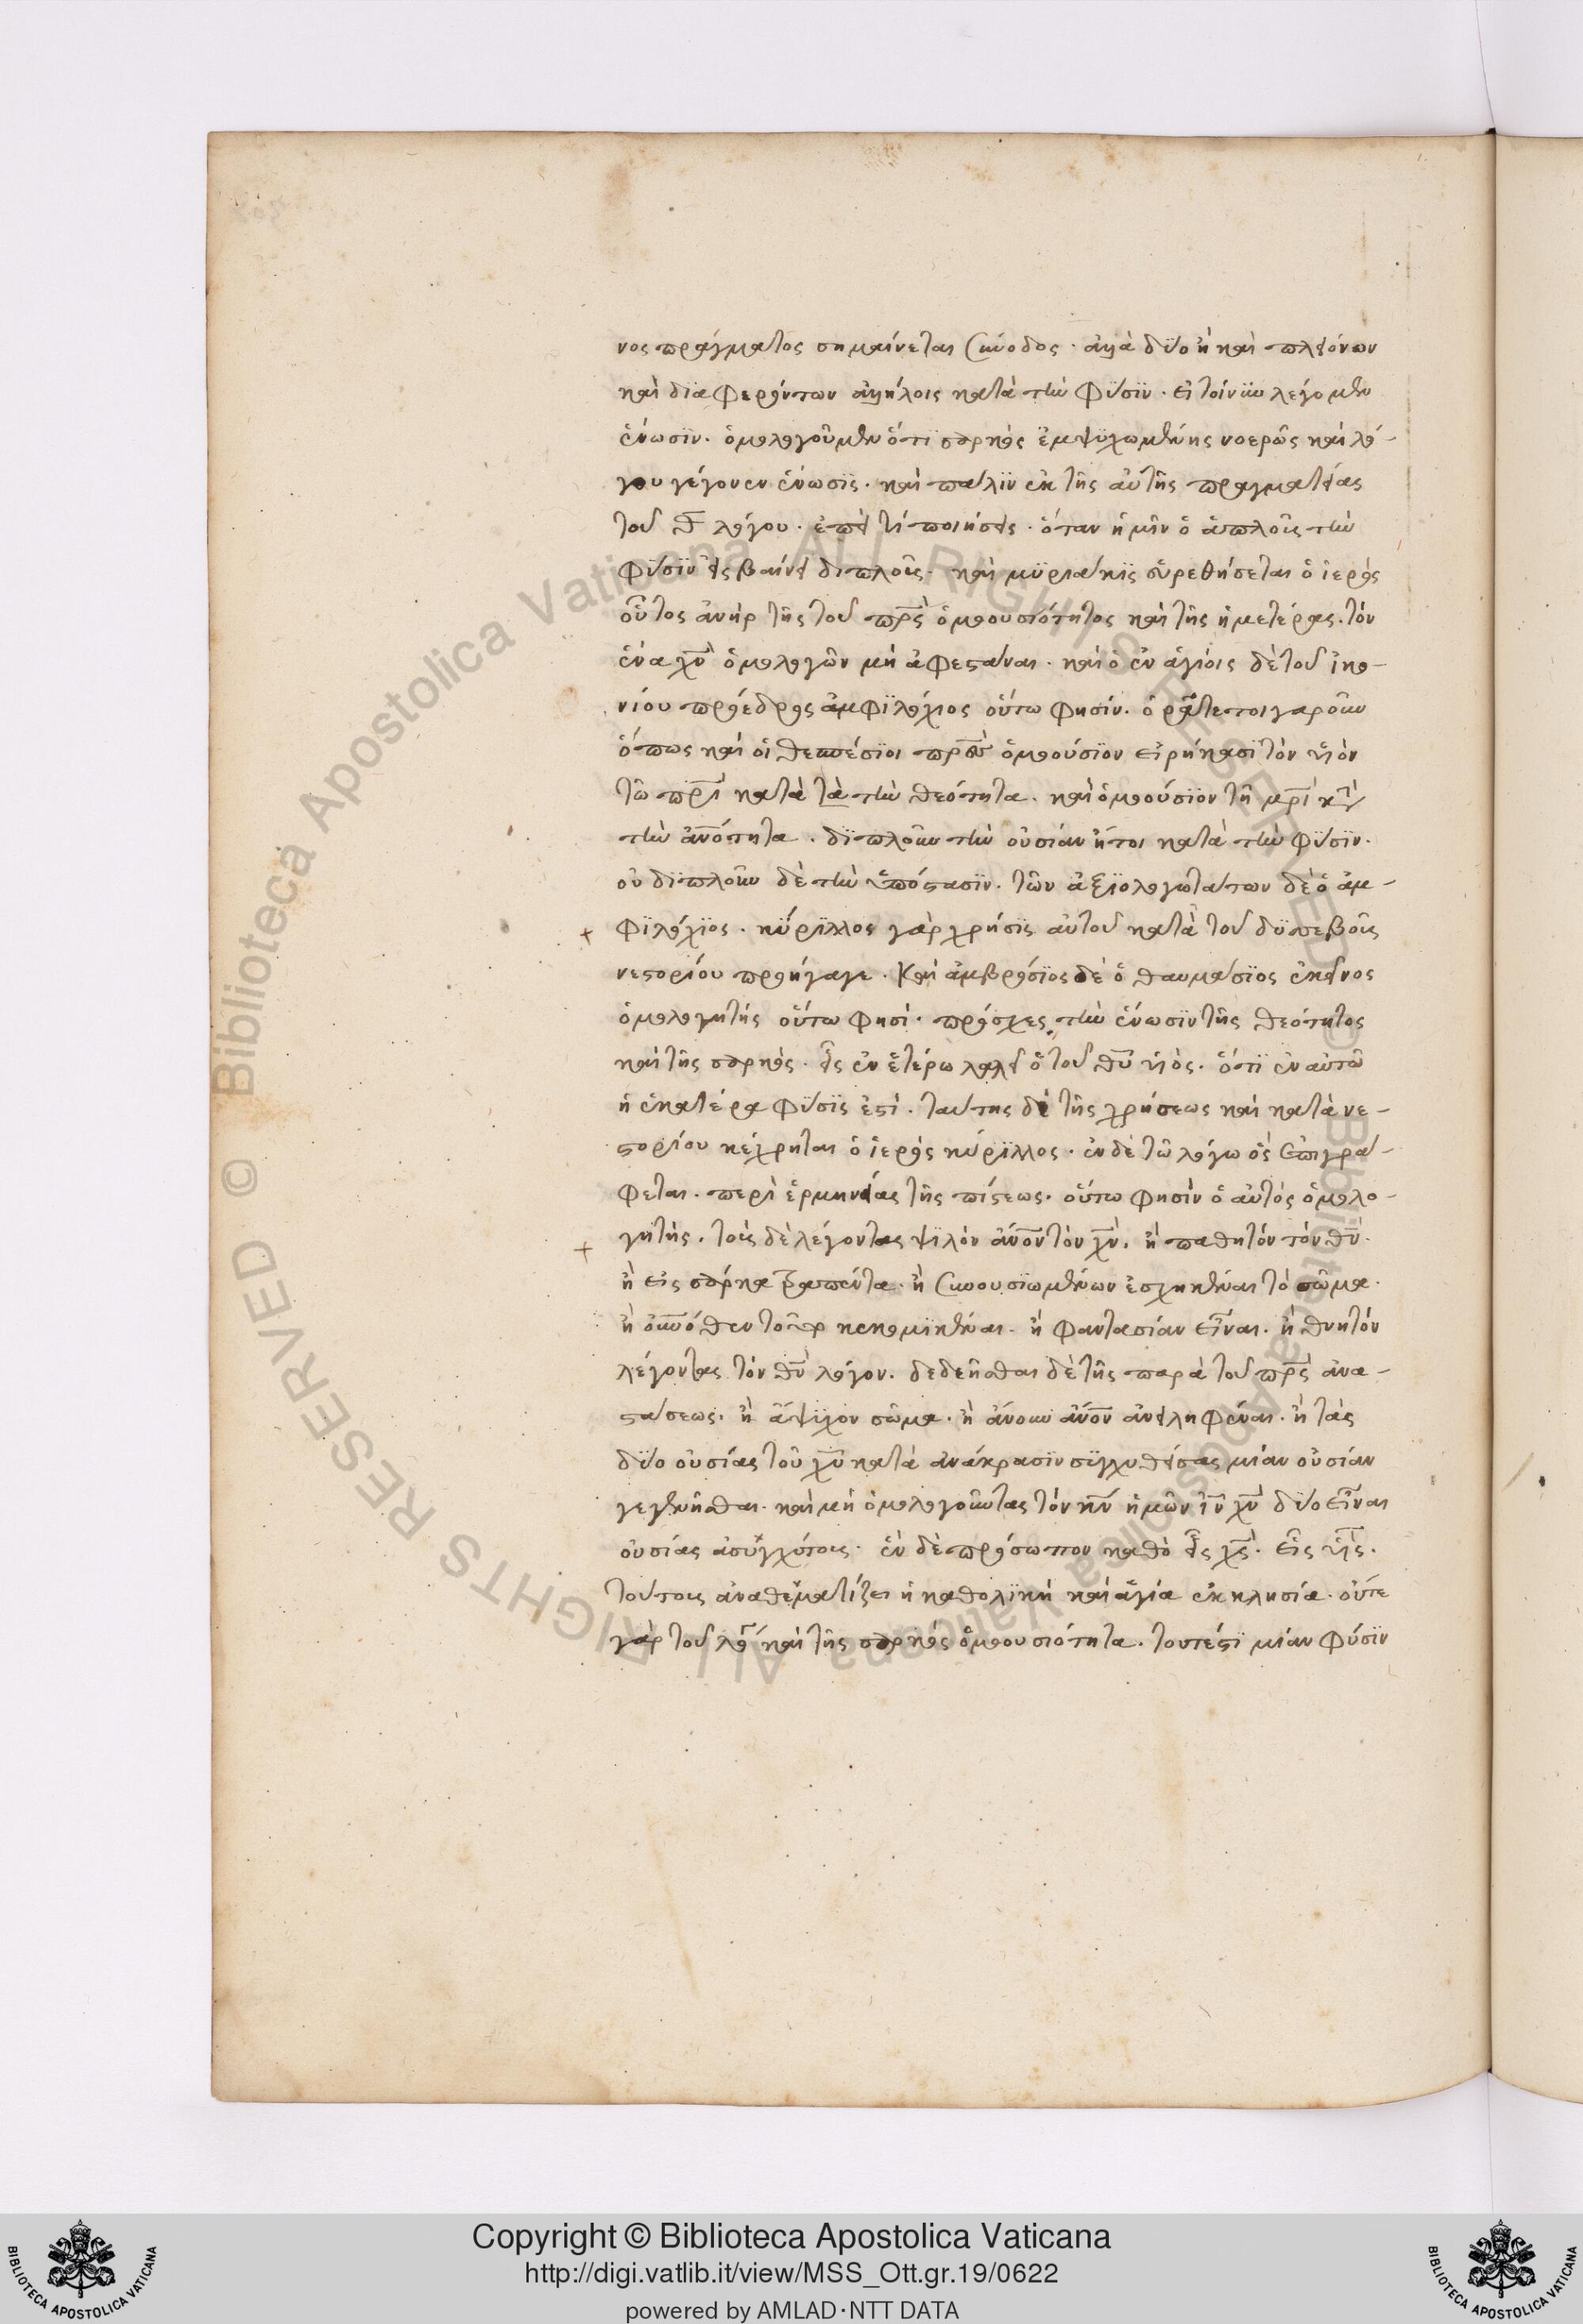 νος πράγματος σημαίνεται σύνοδος · ἀλλὰ δύο ἢ καὶ πλειόνων
καὶ διαφερόντων ἀλλήλοις κατὰ τὴν φύσϊν · εἰ τοίνϋν λέγομεν
ἕνωσϊν · ὁμολογοῦμεν ὅτϊ σαρκὸς ἐμψϋχωμένης νοερῶς καὶ λό-
γου γέγονεν ἕνωσϊς · καὶ πάλϊν ἐκ τῆς αὐτῆς πραγματείας
τοῦ λόγου · ἐπεὶ τί ποιήσεις · ὅταν ἡμῖν ὁ ἁπλοῦς τὴν
φύσϊν εἰσβαίνει διπλοῦς · καὶ μϋριάκϊς εὑρεθήσεται ὁ ἱερὸς
οὗτος ἀνὴρ τῆς τοῦ πρς ὁμοουσιότητος καὶ τῆς ἡμετέρας · τὸν
ἕνα χν ὁμολογῶν μὴ ἀφεστάναι · καὶ ὁ ἐν ἁγίοις δὲ τοῦ ἰκο-
νίου πρόεδρος ἀμφϊλόχιος οὕτω φησίν · ὁρᾶτε τοιγαροῦν
ὅπως καὶ οἱ θεσπέσϊοι πρες ὁμοούσϊον εἰρήκασϊ τὸν υἱὸν
τῶ πρι κατὰ τὰ τὴν θεότητα · καὶ ὁμοούσϊον τῆ μρι κατὰ
τὴν ἀνότητα · δϊπλοῦν τὴν οὐσίαν ἤτοι κατὰ τὴν φύσϊν ·
οὐ δϊπλοῦν δὲ τὴν ὑπόστασϊν · τῶν ἀξϊολογωτάτων δὲ ὁ ἀμ-
φϊλόχϊος · κύρϊλλος γὰρ χρήσϊς αὐτοῦ κατὰ τοῦ δϋσσεβοῦς
νεστορίου προήγαγε · Καὶ ἀμβρόσϊος δὲ ὁ θαυμάσϊος ἐκεῖνος
ὁμολογητὴς οὕτω φησί · πρόσχες τὴν ἕνωσϊν τῆς θεότητος
καὶ τῆς σαρκός · εἷς ἐν ἑτέρω λαλεῖ ὁ τοῦ θυ υἱός · ὅτϊ ἐν αὐτῶ
ἡ ἑκατέρα φύσϊς ἐστί · ταύτης δὲ τῆς χρήσεως καὶ κατὰ νε-
στορίου κέχρηται ὁ ἱερὸς κύρϊλλος · ἐν δὲ τῶ λόγω ὃς ἐπιγρά-
φεται · περὶ ἑρμηνείας τῆς πίστεως · οὕτω φησὶν ὁ αὐτὸς ὁμολο-
γητής · τοὺς δὲ λέγοντας ψιλὸν ἄνον τὸν χν · ἢ παθητὸν τὸν θν ·
ἢ εἰς σάρκα τραπέντα · ἢ συνουσϊωμένων ἐσχηκέναι τὸ σῶμα ·
ἢ ἄνωθεν τοῦτο κεκομϊκέναι · ἢ φαντασίαν εἶναι · ἢ θνητὸν
λέγοντας τὸν θν λόγον · δεδεῆσθαι δὲ τῆς παρὰ τοῦ πρς ἀνα-
στάσεως · ἢ ἄψϋχον σῶμα · ἢ ἄνουν ἄνον ἀνειληφέναι · ἢ τὰς
δύο οὐσίας τοῦ χυ κατὰ ἀνάκρασϊν συγχυθείσας μίαν οὐσίαν
γεγενῆσθαι · καὶ μὴ ὁμολογοῦντας τὸν κν ἡμῶν ιν χν δύο εἶναι
οὐσίας ἀσυγχύτους · ἓν δὲ πρόσωπον καθὸ εἷς χς · εἷς υἱς ·
τούτους ἀναθεματίζει ἡ καθολϊκὴ καὶ ἁγία ἐκκλησία · οὔτε
γὰρ τοῦ λόγου καὶ τῆς σαρκὸς ὁμοουσιότητα · τουτέστϊ μίαν φύσϊν
Copyright © Biblioteca Apostolica Vaticana
http://digi.vatlib.it/view/MSS_Ott.gr.19/0622
powered by AMLAD·NTT DATA
BIBLIOTECA APOSTOLICA VATICANA
BIBLIOTECA APOSTOLICA VATICANA
© Biblioteca Apostolica Vaticana ALL RIGHTS RESERVED © Biblioteca Apostolica Vaticana ALL RIGHTS RESERVED